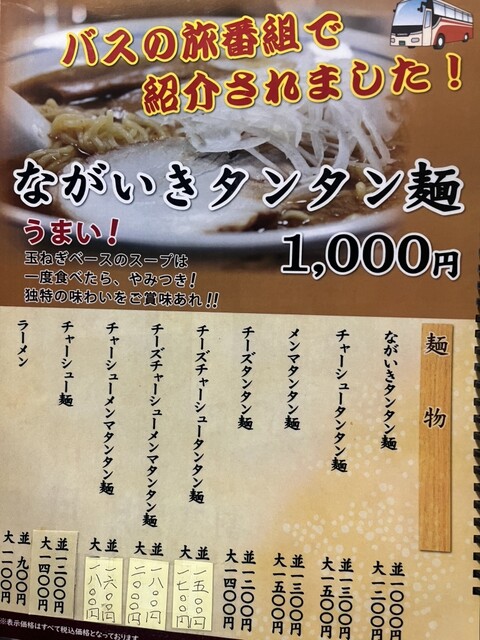 バスの旅番組で
紹介されました！
ながいきタンタン麺
うまい！
1,000円
玉ねぎベースのスープは
一度食べたら、やみつき！
独特の味わいをご賞味あれ！！
麺物
ながいきタンタン麺
並一〇〇〇円
大一二〇〇円
チャーシュータンタン麺
並一三〇〇円
大一五〇〇円
メンマタンタン麺
並一三〇〇円
大一五〇〇円
チーズタンタン麺
並一二〇〇円
大一四〇〇円
チーズチャーシュータンタン麺
並一五〇〇円
大一七〇〇円
チーズチャーシューメンマタンタン麺
並一八〇〇円
大二〇〇〇円
チャーシューメンマタンタン麺
並一六〇〇円
大一八〇〇円
チャーシュー麺
並一二〇〇円
大一四〇〇円
ラーメン
並九〇〇円
大一一〇〇円
※表示価格はすべて税込価格となっております。